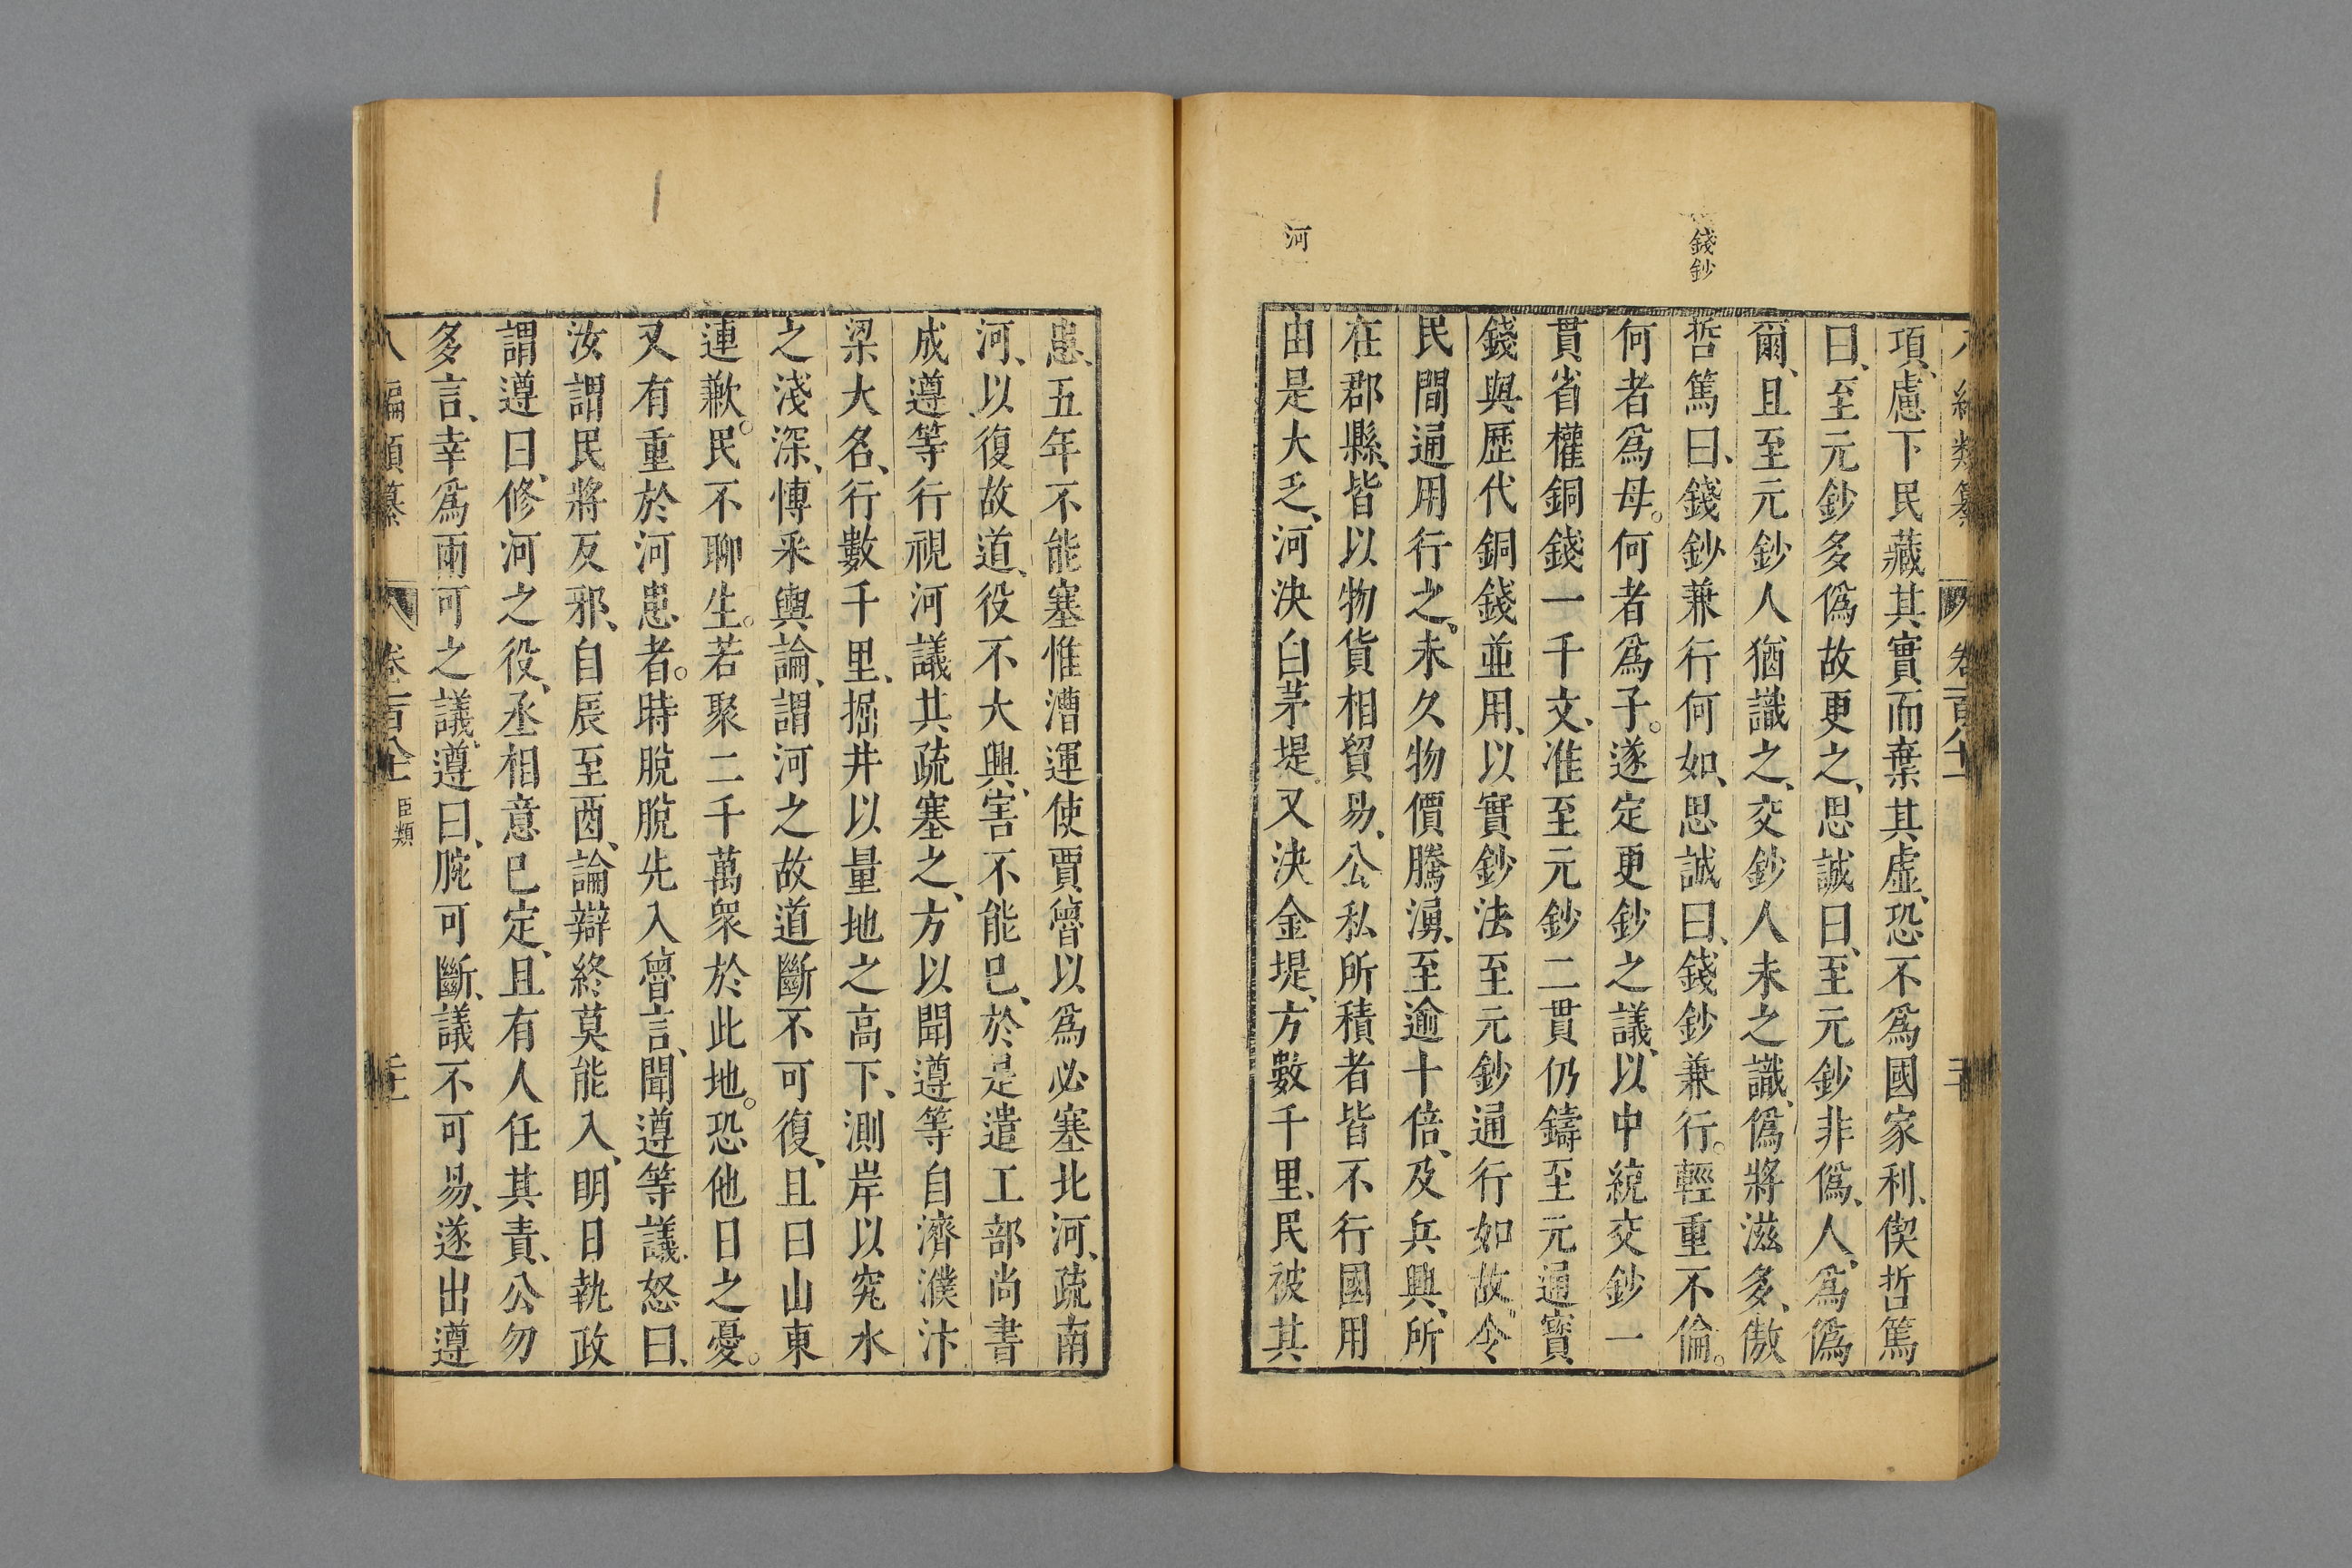 錢鈔
河
項、慮下民藏其實而棄其虛、恐不爲國家利、偰哲篤
曰、至元鈔多僞故更之、思誠曰、至元鈔非僞、人爲僞
爾、且至元鈔人猶識之、交鈔人未之識、僞將滋多、傲
哲篤曰、錢鈔兼行何如、思誠曰、錢鈔兼行。輕重不倫。
何者爲母。何者爲子。遂定更鈔之議、以中統交鈔一
貫省權銅錢一千文、准至元鈔二貫仍鑄至元通寶
錢與歷代銅錢並用、以實鈔法至元鈔通行如故。令
民間通用行之、未久物價騰湧、至逾十倍、及兵興、所
在郡縣、皆以物貨相貿易、公私所積者皆不行國用
由是大乏、河決白茅堤、又決金堤、方數千里、民被其
患、五年不能塞惟漕運使賈魯以爲必塞北河、疏南
河、以復故道、役不大興、害不能已、於是遣工部尚書
成遵等行視河議其疏塞之、方以聞遵等自濟濮汴
梁大名、行數千里、掘井以量地之高下、測岸以究水
之淺深、博釆輿論、謂河之故道斷不可復、且曰山東
連歉。民不聊生。若聚二千萬衆於此地。恐他日之憂。
又有重於河患者。時脫脫先入魯言、聞遵等議怒曰、
汝謂民將反邪、自辰至酉、論辯終莫能入、明日執政
謂遵曰、修河之役、丞相意已定、且有人任其責、公勿
多言、幸爲兩可之議、遵曰、腕可斷、議不可易、遂出遵
編類纂 卷一百八十 臣類